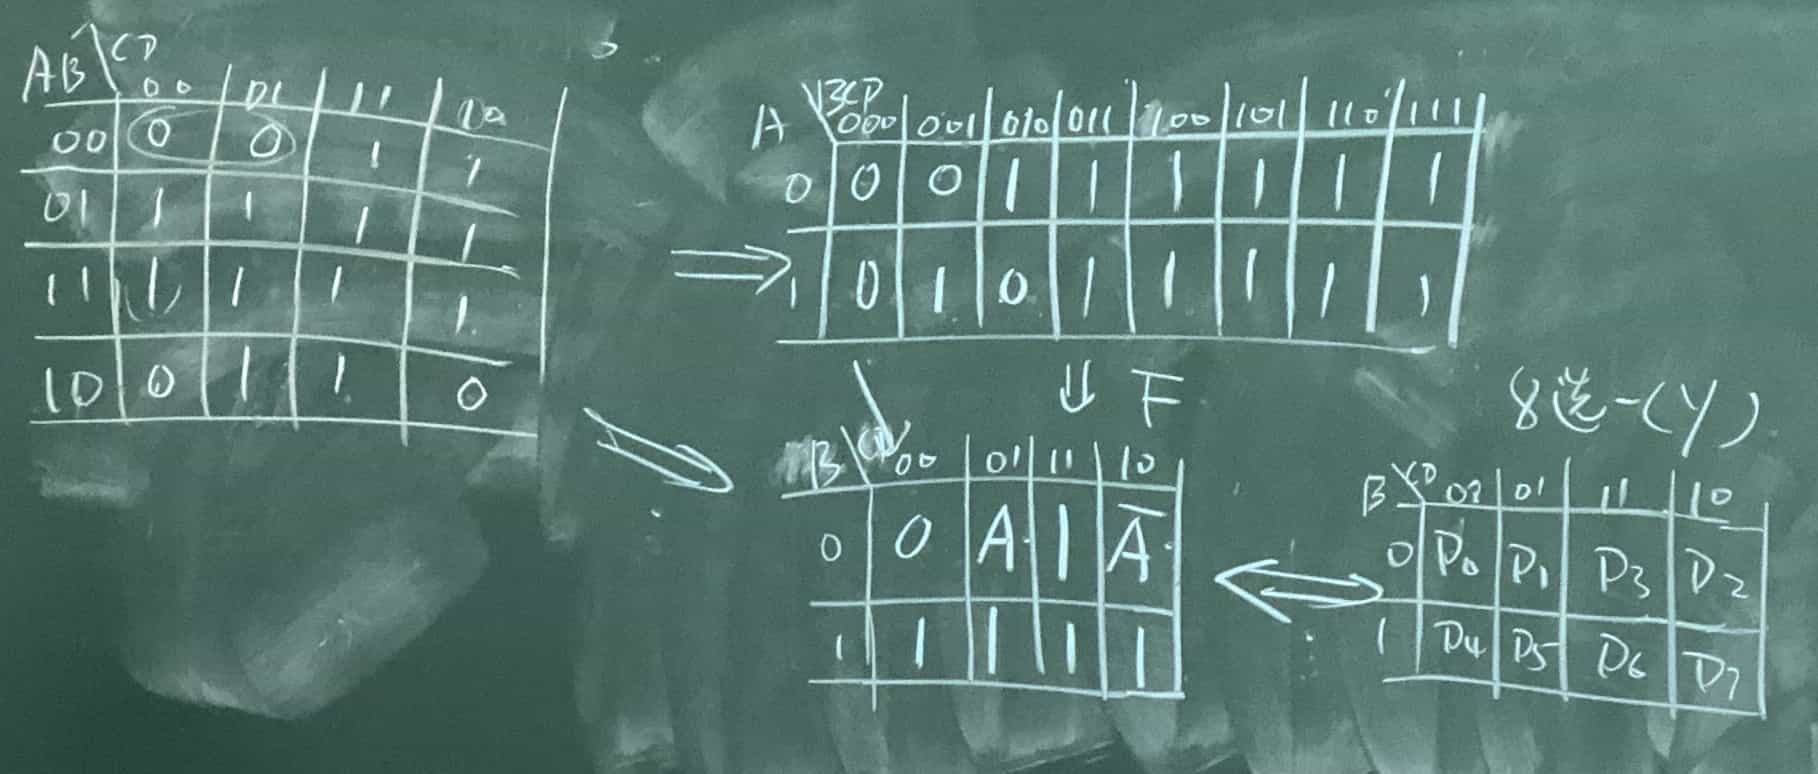 AB\CD 00 01 11 10
00 0 0 1 1
01 1 1 1 1
11 1 1 1 1
10 0 1 1 0
A\BCD 000 001 010 011 100 101 110 111
0 0 0 1 1 1 1 1 1
1 0 1 0 1 1 1 1 1
⇒
⇓ F
B\CD 00 01 11 10
0 0 A 1 Ā
1 1 1 1 1
8选一(Y)
B\CD 00 01 11 10
0 D0 D1 D3 D2
1 D4 D5 D6 D7